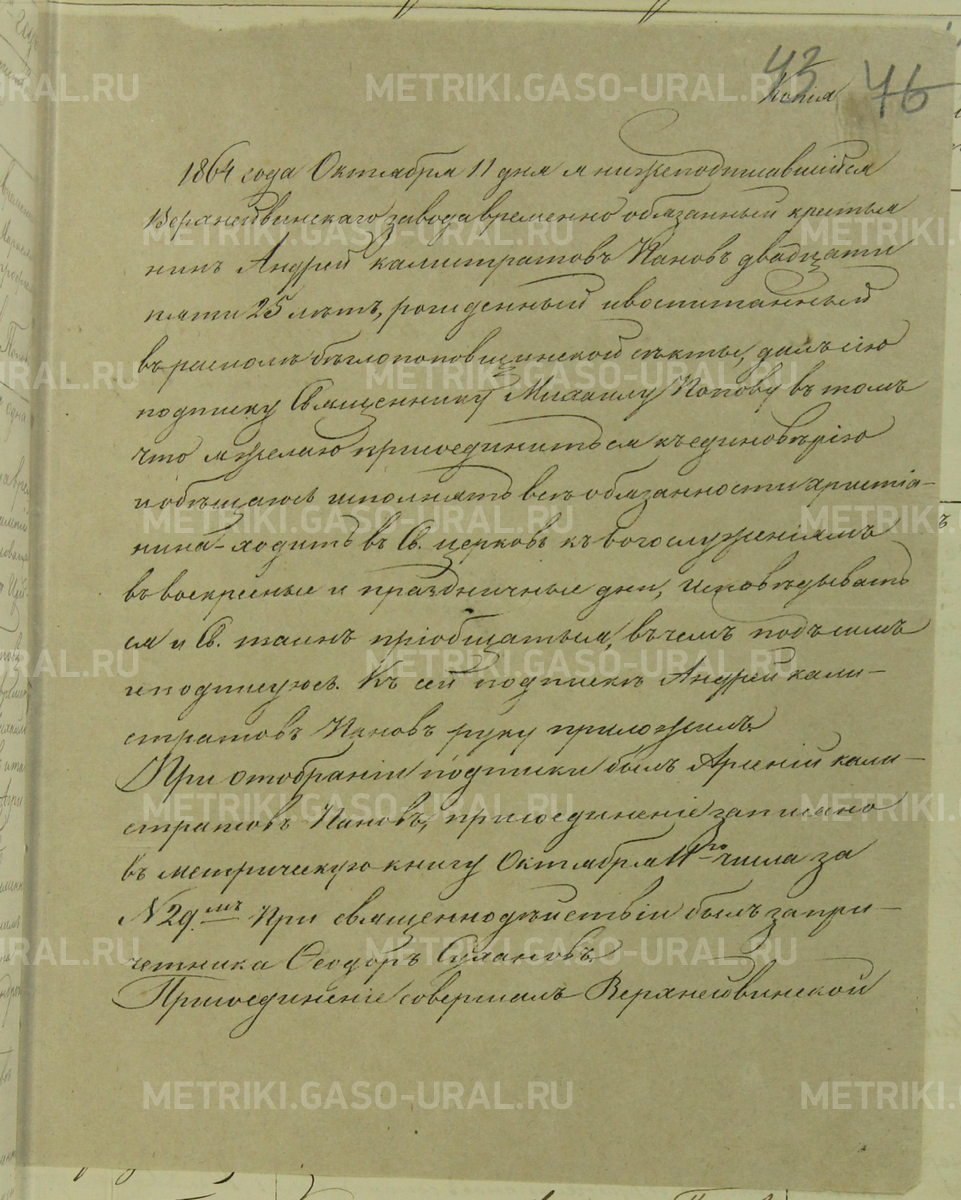 43 46
Копія
1864 года Октября 11 дня я нижеподписавшійся
Верхнейвинскаго завода временно обязанный крестья
нинъ Андрей калистратовъ Пановъ двадцати
пяти 25 лѣтъ, рожденный и воспитанный
въ расколѣ бѣглопоповщинской сѣкты, далъ сію
подписку Священнику Михаилу Попову въ томъ
что я желаю присоединиться къ единовѣрію
и обѣщаюсь исполнять всѣ обязанности христіа-
нина - ходить въ Св. церковь къ богослуженіямъ
въ воскресные и праздничные дни, исповѣдывать
ся и Св. таинъ пріобщаться, въ чемъ подъ симъ
и подписуюсь. Къ сей подпискѣ Андрей кали-
стратовъ Пановъ руку приложилъ
При отобраніи подписки былъ Арсеній кали-
стратовъ Пановъ, присоединеніе записано
въ метрическую книгу Октября 11го числа за
№ 29.мъ При священнодѣйствіи былъ за при-
четника Ѳеодоръ
Присоединеніе совершалъ Верхнейвинской
METRIKI.GASO-URAL.RU